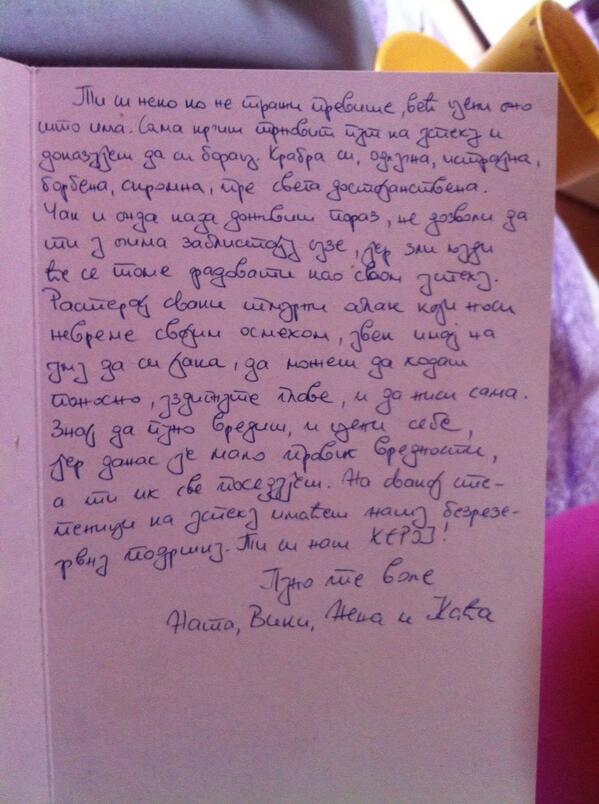 Ти си неко ко не тражи превише, већ цени оно
што има. Сама крчиш трновит пут ка успеху и
доказујеш да си борац. Храбра си, одлучна, истрајна,
борбена, скромна, пре свега достојанствена.
Чак и онда када доживиш пораз, не дозволи да
ти у очима заблистају сузе, јер зли људи
ће се томе радовати као свом успеху.
Растерај сваки тмурни облак који носи
невреме својим осмехом, увек имај на
уму да си јака, да можеш да ходаш
поносно, уздигнуте главе, и да ниси сама.
Знај да пуно вредиш, и цени себе,
јер данас је мало правих вредности,
а ти их све поседујеш. На свакој сте-
пеници ка успеху имаћеш нашу безрезе-
рвну подршку. Ти си наш ХЕРОЈ!
Пуно те воле
Ната, Вики, Нена и Каћа